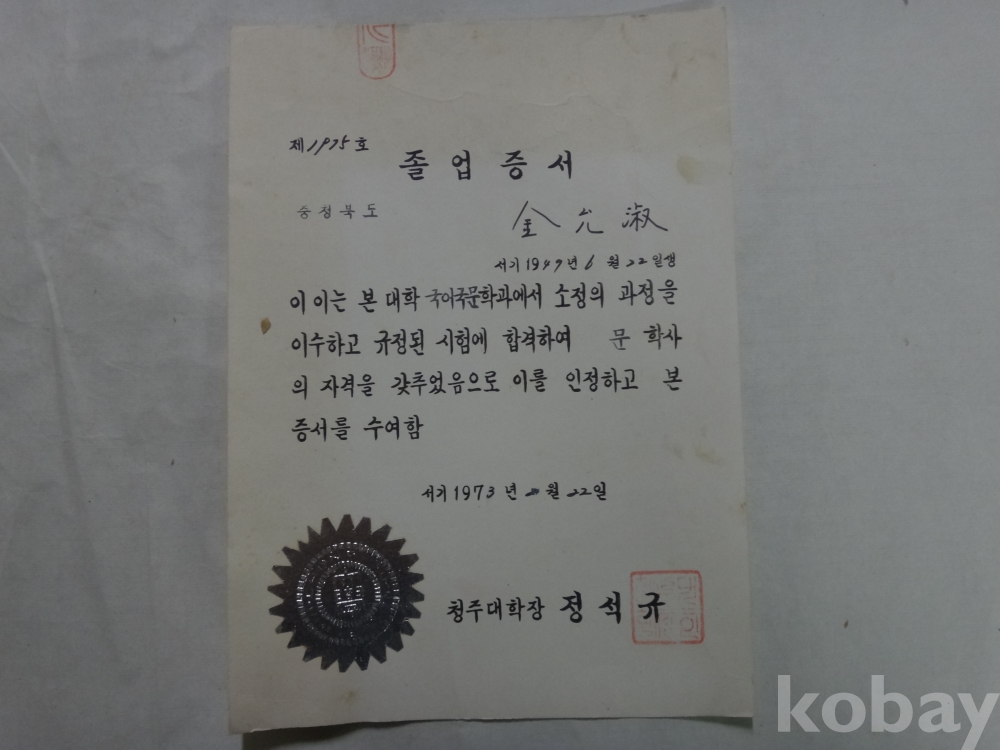 제1975호
졸업증서
충청북도
金允淑
서기1949년6월22일생
이 이는 본 대학 국어국문학과에서 소정의 과정을
이수하고 규정된 시험에 합격하여 문 학사
의 자격을 갖추었음으로 이를 인정하고 본
증서를 수여함
서기1973년2월22일
청주대학장 정석규
kobay